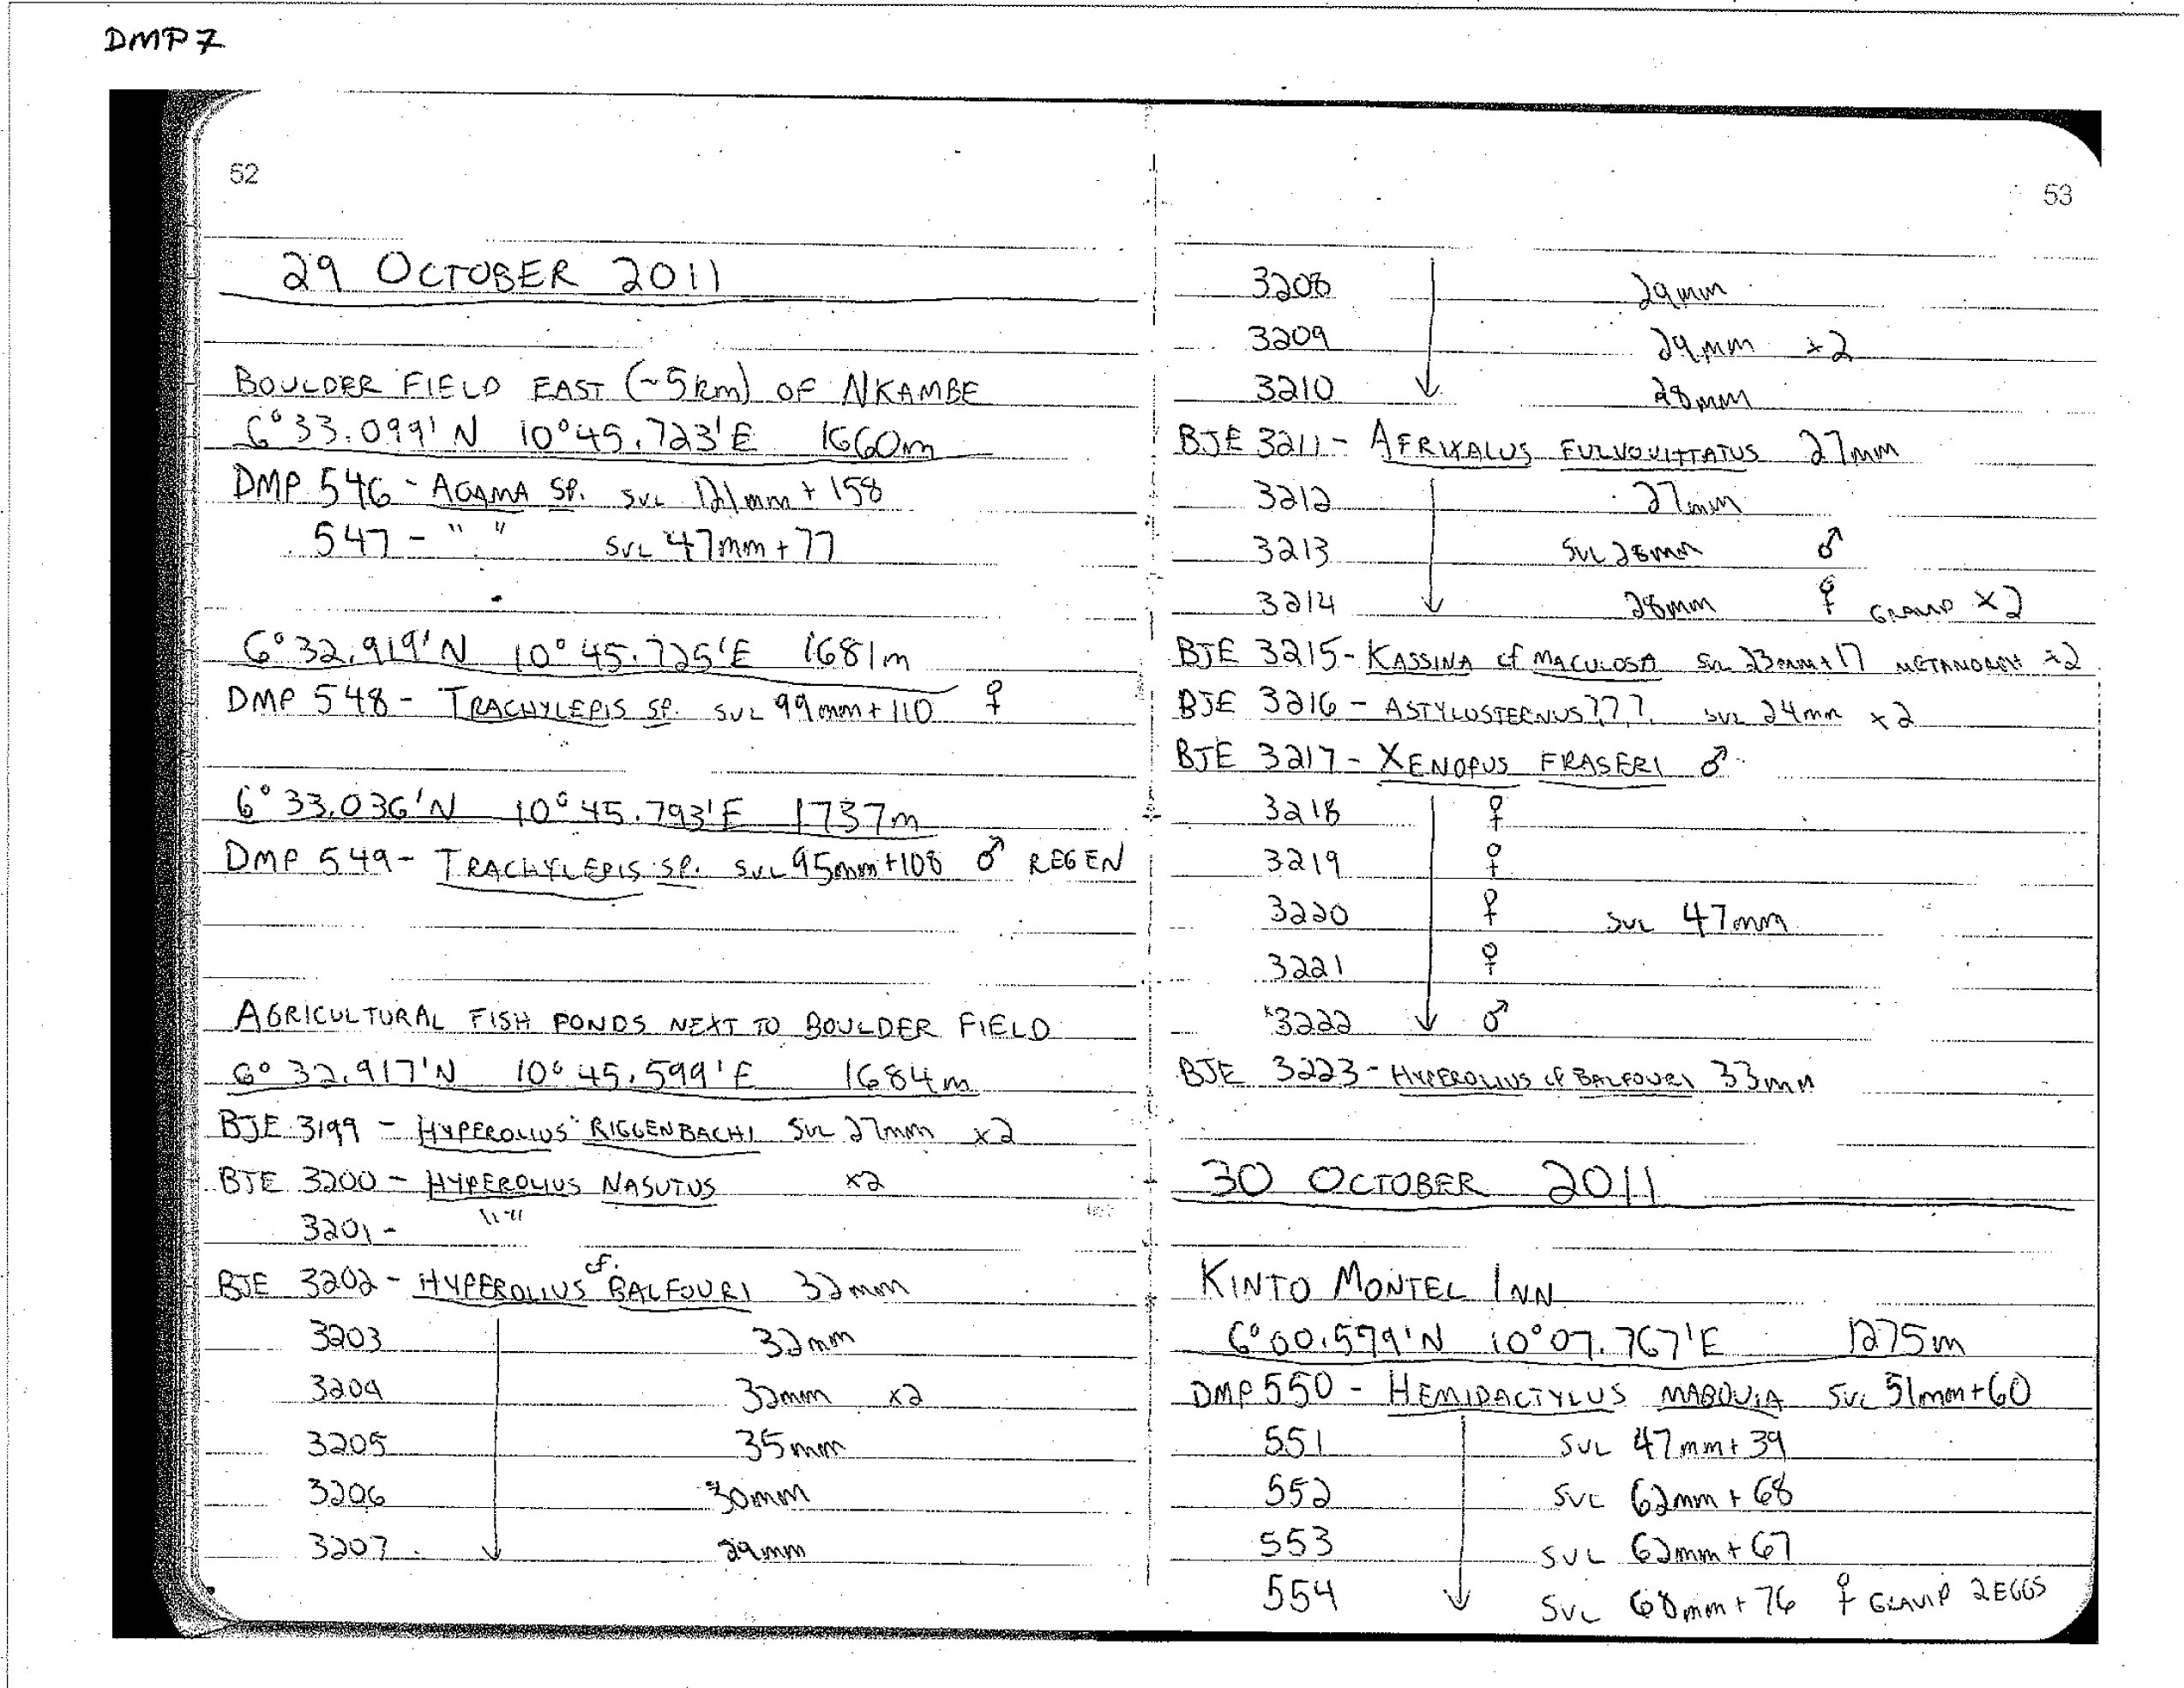 DMP7
52
29 OCTOBER 2011
BOULDER FIELD EAST (~5km) OF NKAMBE
6°33.099'N 10°45.723'E 1660m
DMP 546 - AGAMA SP. SVL 121mm + 158
547 - " " SVL 47mm+77
6°32.919'N 10°45.725'E 1681m
DMP 548 - TRACHYLEPIS SP. SVL 99mm+110 ♀
6°33.036'N 10°45.793'E 1737m
DMP 549 - TRACHYLEPIS SP. SVL 95mm+108 ♂ REGEN
AGRICULTURAL FISH PONDS NEXT TO BOULDER FIELD
6°32.917'N 10°45.599'E 1684m
BJE 3199 - HYPEROLIUS RIGGENBACHI SVL 27mm x2
BJE 3200 - HYPEROLIUS NASUTUS x2
3201 - " "
BJE 3202 - HYPEROLIUS cf. BALFOURI 32mm
3203 32mm
3204 32mm x2
3205 35mm
3206 30mm
3207 29mm
53
3208 29mm
3209 29mm x2
3210 28mm
BJE 3211 - AFRIXALUS FULVOVITTATUS 27mm
3212 27mm
3213 SVL 28mm ♂
3214 28mm ♀ GRAVID x2
BJE 3215 - KASSINA cf MACULOSA SVL 23mm+17 METAMORPH x2
BJE 3216 - ASTYLOSTERNUS??? SVL 24mm x2
BJE 3217 - XENOPUS FRASERI ♂
3218 ♀
3219 ♀
3220 ♀ SVL 47mm
3221 ♀
3222 ♂
BJE 3223 - HYPEROLIUS cf BALFOURI 33mm
30 OCTOBER 2011
KINTO MONTEL INN
6°00.579'N 10°07.767'E 1275m
DMP 550 - HEMIDACTYLUS MABOUIA SVL 51mm+60
551 SVL 47mm+39
552 SVL 62mm+68
553 SVL 62mm+67
554 SVL 68mm+76 ♀ GRAVID 2EGGS